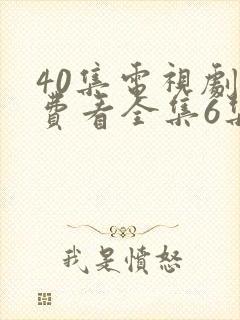 40集電視劇
費看全集6集
我是憤怒